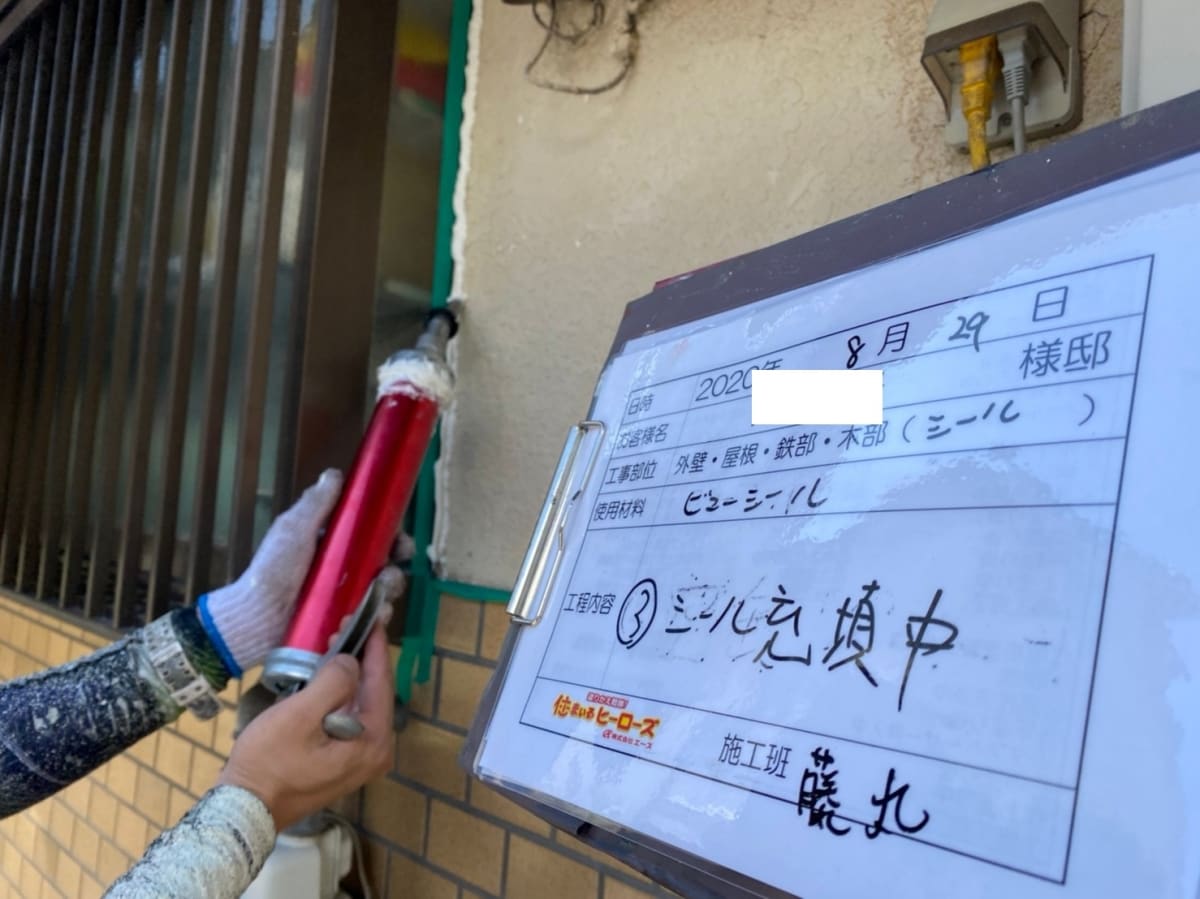 日時 2020年 8月 29日
お客様名 様邸
工事部位 外壁・屋根・鉄部・木部(シール )
使用材料 ビューシール
工程内容 ③シール充填中
塗りかえ戦隊!
住まいるヒーローズ
株式会社エース
施工班 藤丸